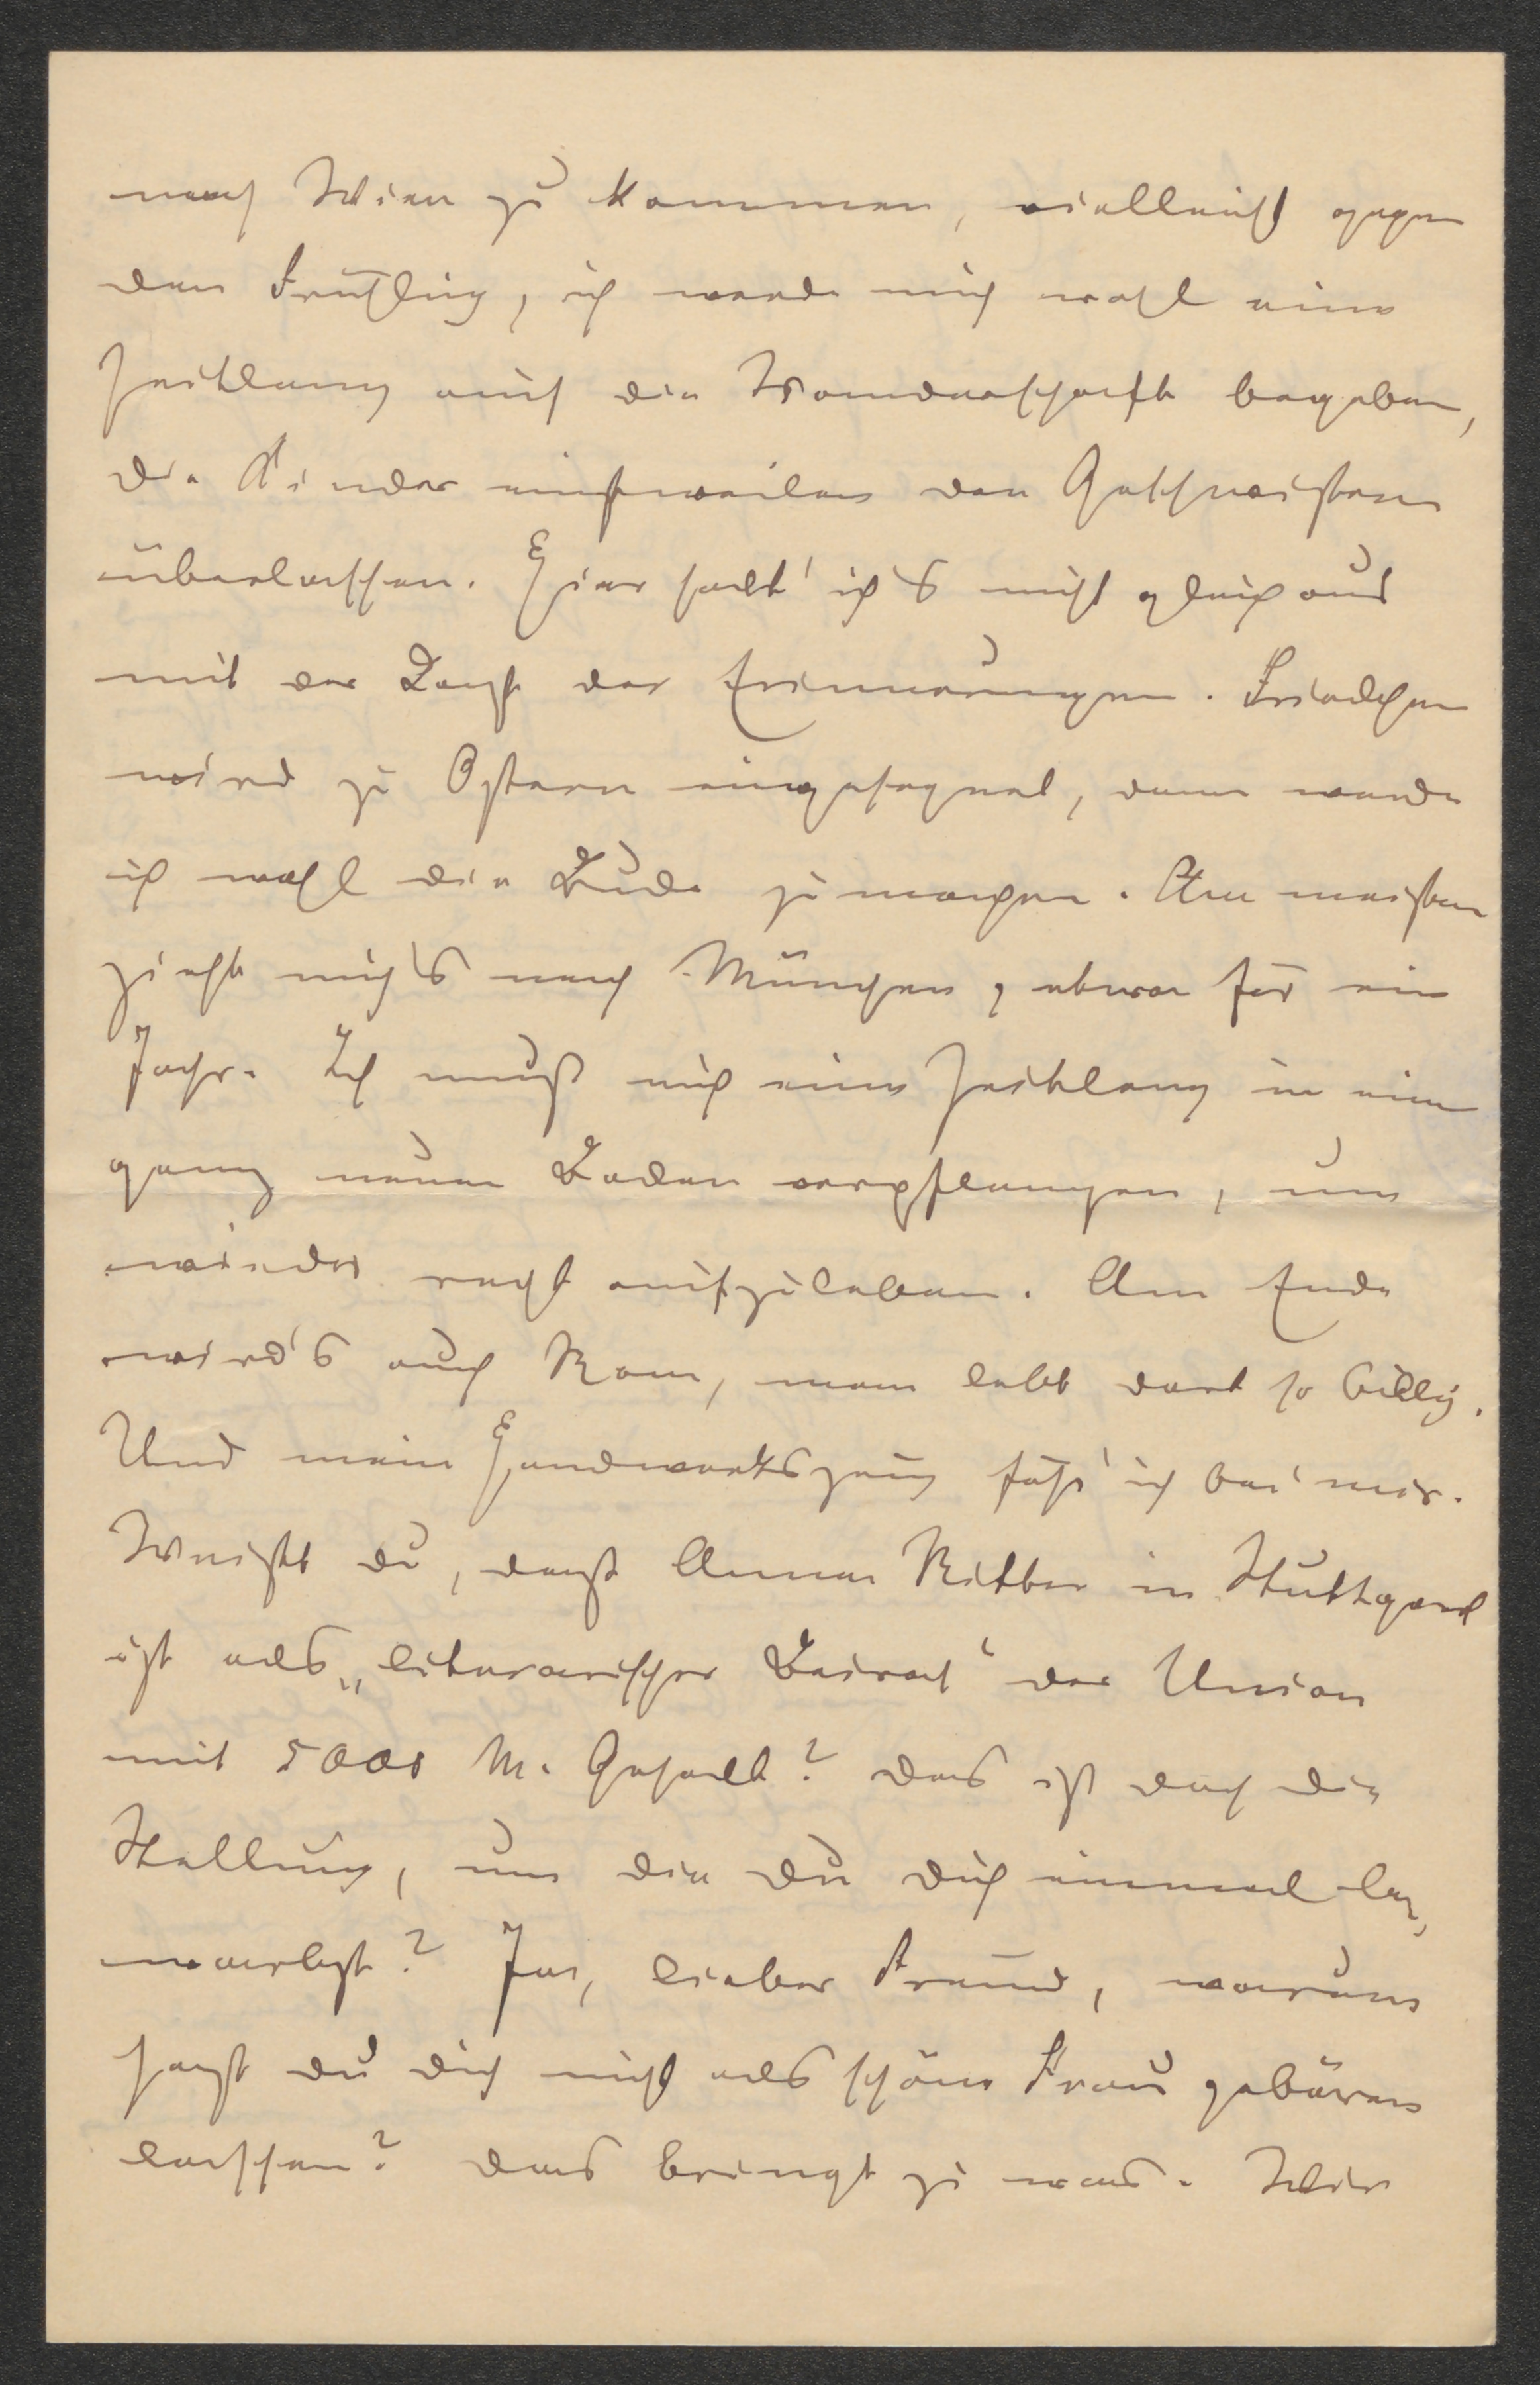 nach Wien zu kommen, vielleicht gegen
den Frühling, ich werde mich wohl eine
Zeitlang auf die Wanderschaft begeben,
die Kinder einstweilen den Geschwistern
überlassen. Hier halt' ich's nicht gleich aus
mit der Last der Erinnerungen. Friedchen
wird zu Ostern eingesegnet, dann werde
ich wohl die Bude zumachen. Am meisten
zieht mich's nach München, etwa für ein
Jahr. Ich muß mich eine Zeitlang in einen
ganz neuen Boden verpflanzen, um
wieder recht aufzuleben. Am Ende
wird's auch Rom, man lebt dort so billig.
Und mein Handwerkszeug führ' ich bei mir.
Weißt du, daß Anna Ritter in Stuttgart
ist als „literarischer Beirat" der Union
mit 5000 M. Gehalt? Das ist doch die
Stellung, um die Du Dich einmal be-
warbst? Ja, lieber Freund, warum
hast du dich nicht als schöne Frau gebären
lassen? Das bringt zu was. Wir